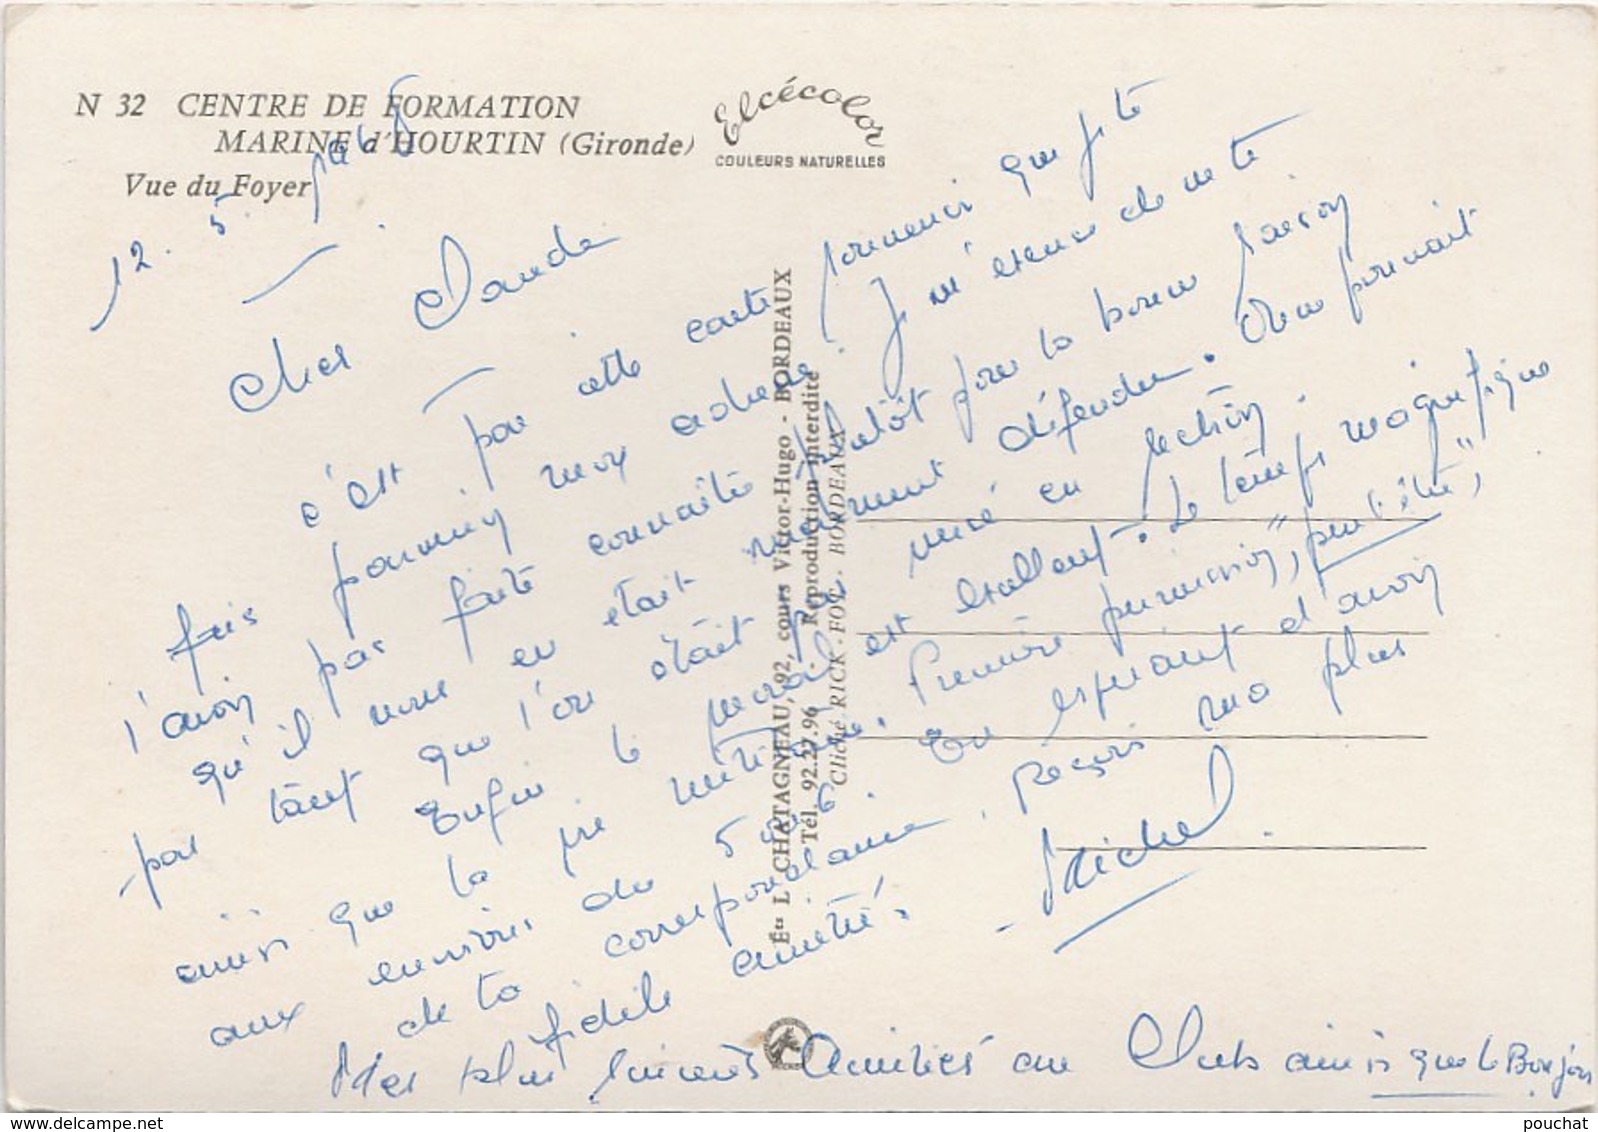 N 32 CENTRE DE FORMATION
MARINE d'HOURTIN (Gironde)
Vue du Foyer
Elcécolor
COULEURS NATURELLES
12. 5.
Cher Claude
c'est par cette carte souvenir que je te
fais parvenir mon adresse. Je m'excuse de ne te
l'avoir pas faite connaître plutôt pour la bonne raison
qu'il nous en était vraiment défendu. On ne pouvait
pas tant que l'on était pas mixé en section.
Enfin le moral est excellent. Le temps magnifique
ainsi que la vie militaire. Première permission, "peut-être",
aux environs du 5 au 6. En espérant d'avoir
de ta correspondance, reçois ma plus
fidèle amitié.
- Michel.
Mes plus sincères Amitiés au Club ainsi que le Bonjour
Éts L. CHATAGNEAU, 92, cours Victor-Hugo - BORDEAUX
Tél. 92.27.96 Reproduction interdite
Cliché RICK - FOV - BORDEAUX
www.delcampe.net
pouchat